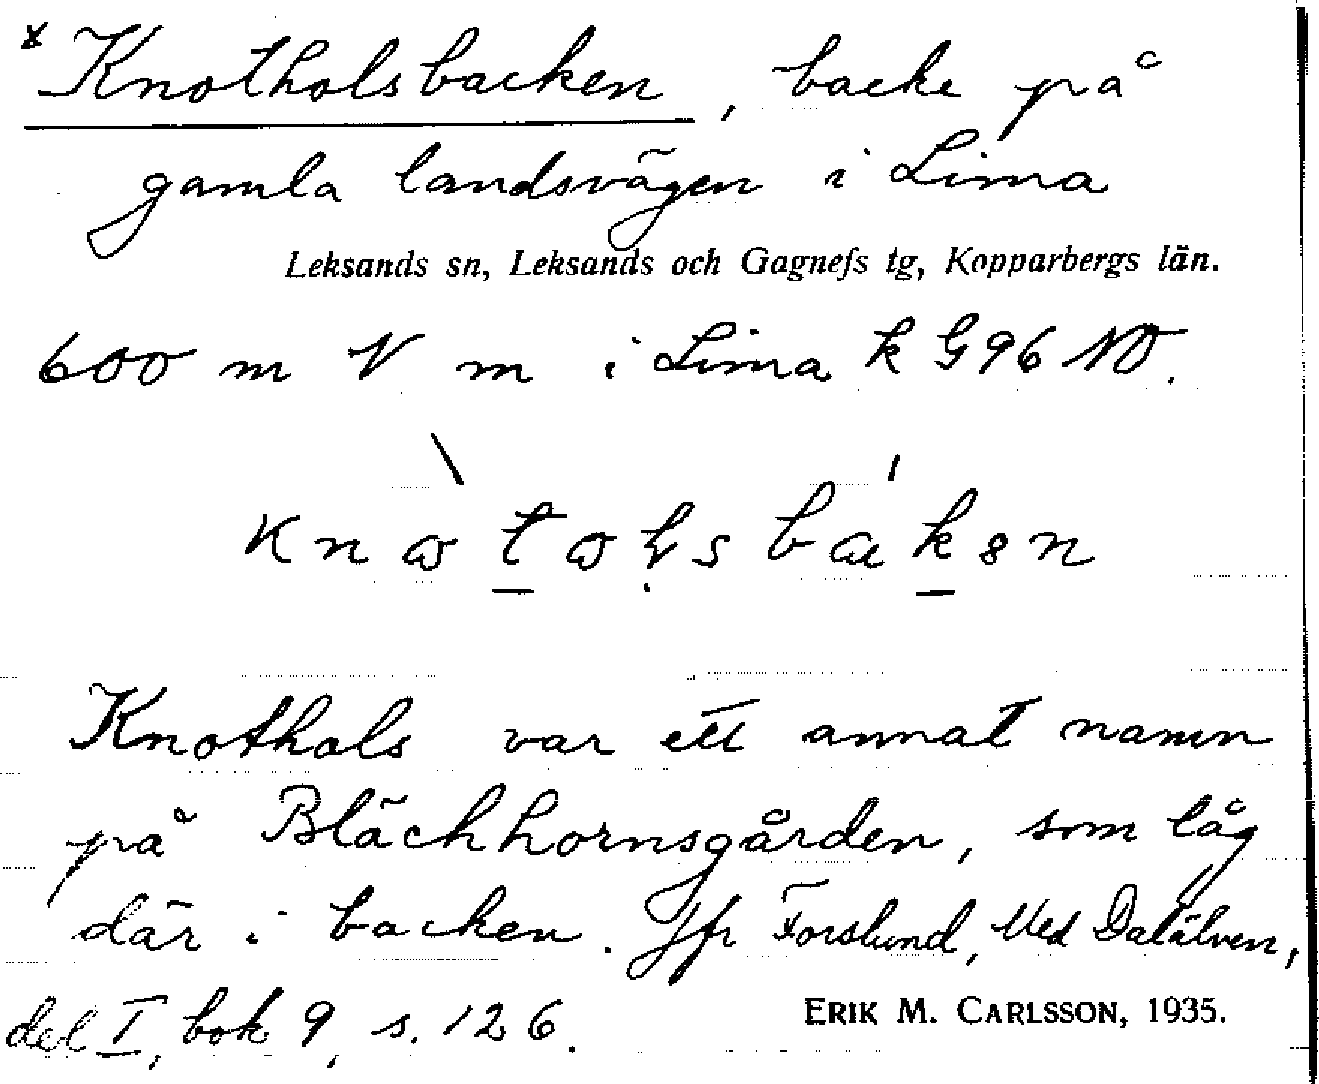 * Knotholsbacken, backe på
gamla landsvägen i Lima
Leksands sn, Leksands och Gagnefs tg, Kopparbergs län.
600 m V m i Lima k G96 NO.
Knothols var ett annat namn
på Bläckhornsgården, som låg
där i backen. Jfr Forslund, Med Dalälven,
del I, bok 9, s. 126.
ERIK M. CARLSSON, 1935.